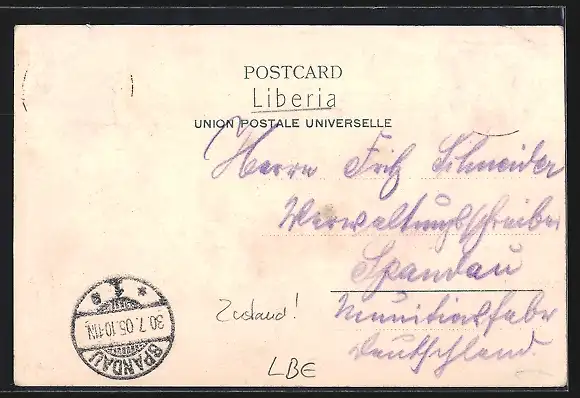 POSTCARD
Liberia
UNION POSTALE UNIVERSELLE
Herrn Fritz Schneider
Verwaltungsschreiber
Spandau
Munitionsfabr
Deutschland.
SPANDAU
1
30.7.05.10-11N
Zustand!
LBE